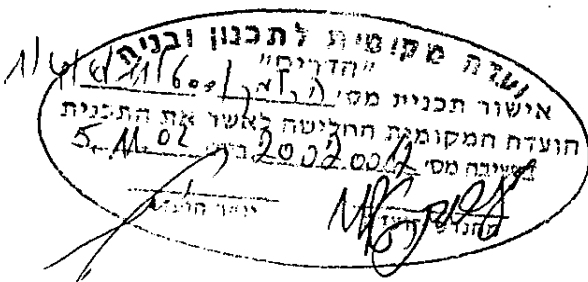 ועדה מקומית לתכנון ובנית
"הדרים"
אישור תכנית מס'
הועדה המקומית החליטה לאשר את התכנית
בישיבה מס' 2002004 ביום 5.11.02
יושר הועדה מהנדס הועדה